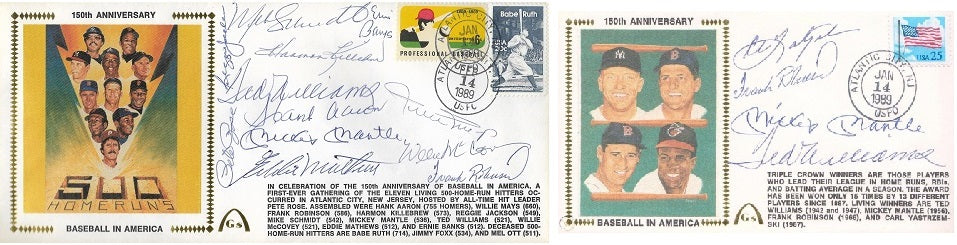 150th ANNIVERSARY
Mike Schmidt
Ernie Banks
Harmon Killebrew
Ted Williams
Hank Aaron
Mickey Mantle
Willie Mays
Willie McCovey
Eddie Mathews
Frank Robinson
1869-1969
6¢
PROFESSIONAL BASEBALL
Babe Ruth
ATLANTIC CITY, NJ
JAN
14
1989
USPO
500
HOMERUNS
IN CELEBRATION OF THE 150TH ANNIVERSARY OF BASEBALL IN AMERICA, A
FIRST-EVER GATHERING OF THE ELEVEN LIVING 500-HOME-RUN HITTERS OC-
CURRED IN ATLANTIC CITY, NEW JERSEY, HOSTED BY ALL-TIME HIT LEADER
PETE ROSE. ASSEMBLED WERE HANK AARON (755 HOMERS), WILLIE MAYS (660),
FRANK ROBINSON (586), HARMON KILLEBREW (573), REGGIE JACKSON (549),
MIKE SCHMIDT (542), MICKEY MANTLE (536), TED WILLIAMS (521), WILLIE
McCOVEY (521), EDDIE MATHEWS (512), AND ERNIE BANKS (512). DECEASED
500-HOME-RUN HITTERS ARE BABE RUTH (714), JIMMY FOXX (534), AND MEL OTT (511).
BASEBALL IN AMERICA
GS
150th ANNIVERSARY
Carl Yastrzemski
Frank Robinson
Mickey Mantle
Ted Williams
USA 25
ATLANTIC CITY, NJ
JAN
14
1989
USPO
TRIPLE CROWN WINNERS ARE THOSE PLAYERS
WHO LEAD THEIR LEAGUE IN HOME RUNS, RBIs,
AND BATTING AVERAGE IN A SEASON. THE AWARD
HAS BEEN WON ONLY 15 TIMES BY 13 DIFFERENT
PLAYERS SINCE 1887. LIVING WINNERS ARE TED
WILLIAMS (1942 and 1947), MICKEY MANTLE (1956),
FRANK ROBINSON (1966), AND CARL YASTRZEM-
SKI (1967).
BASEBALL IN AMERICA
GS